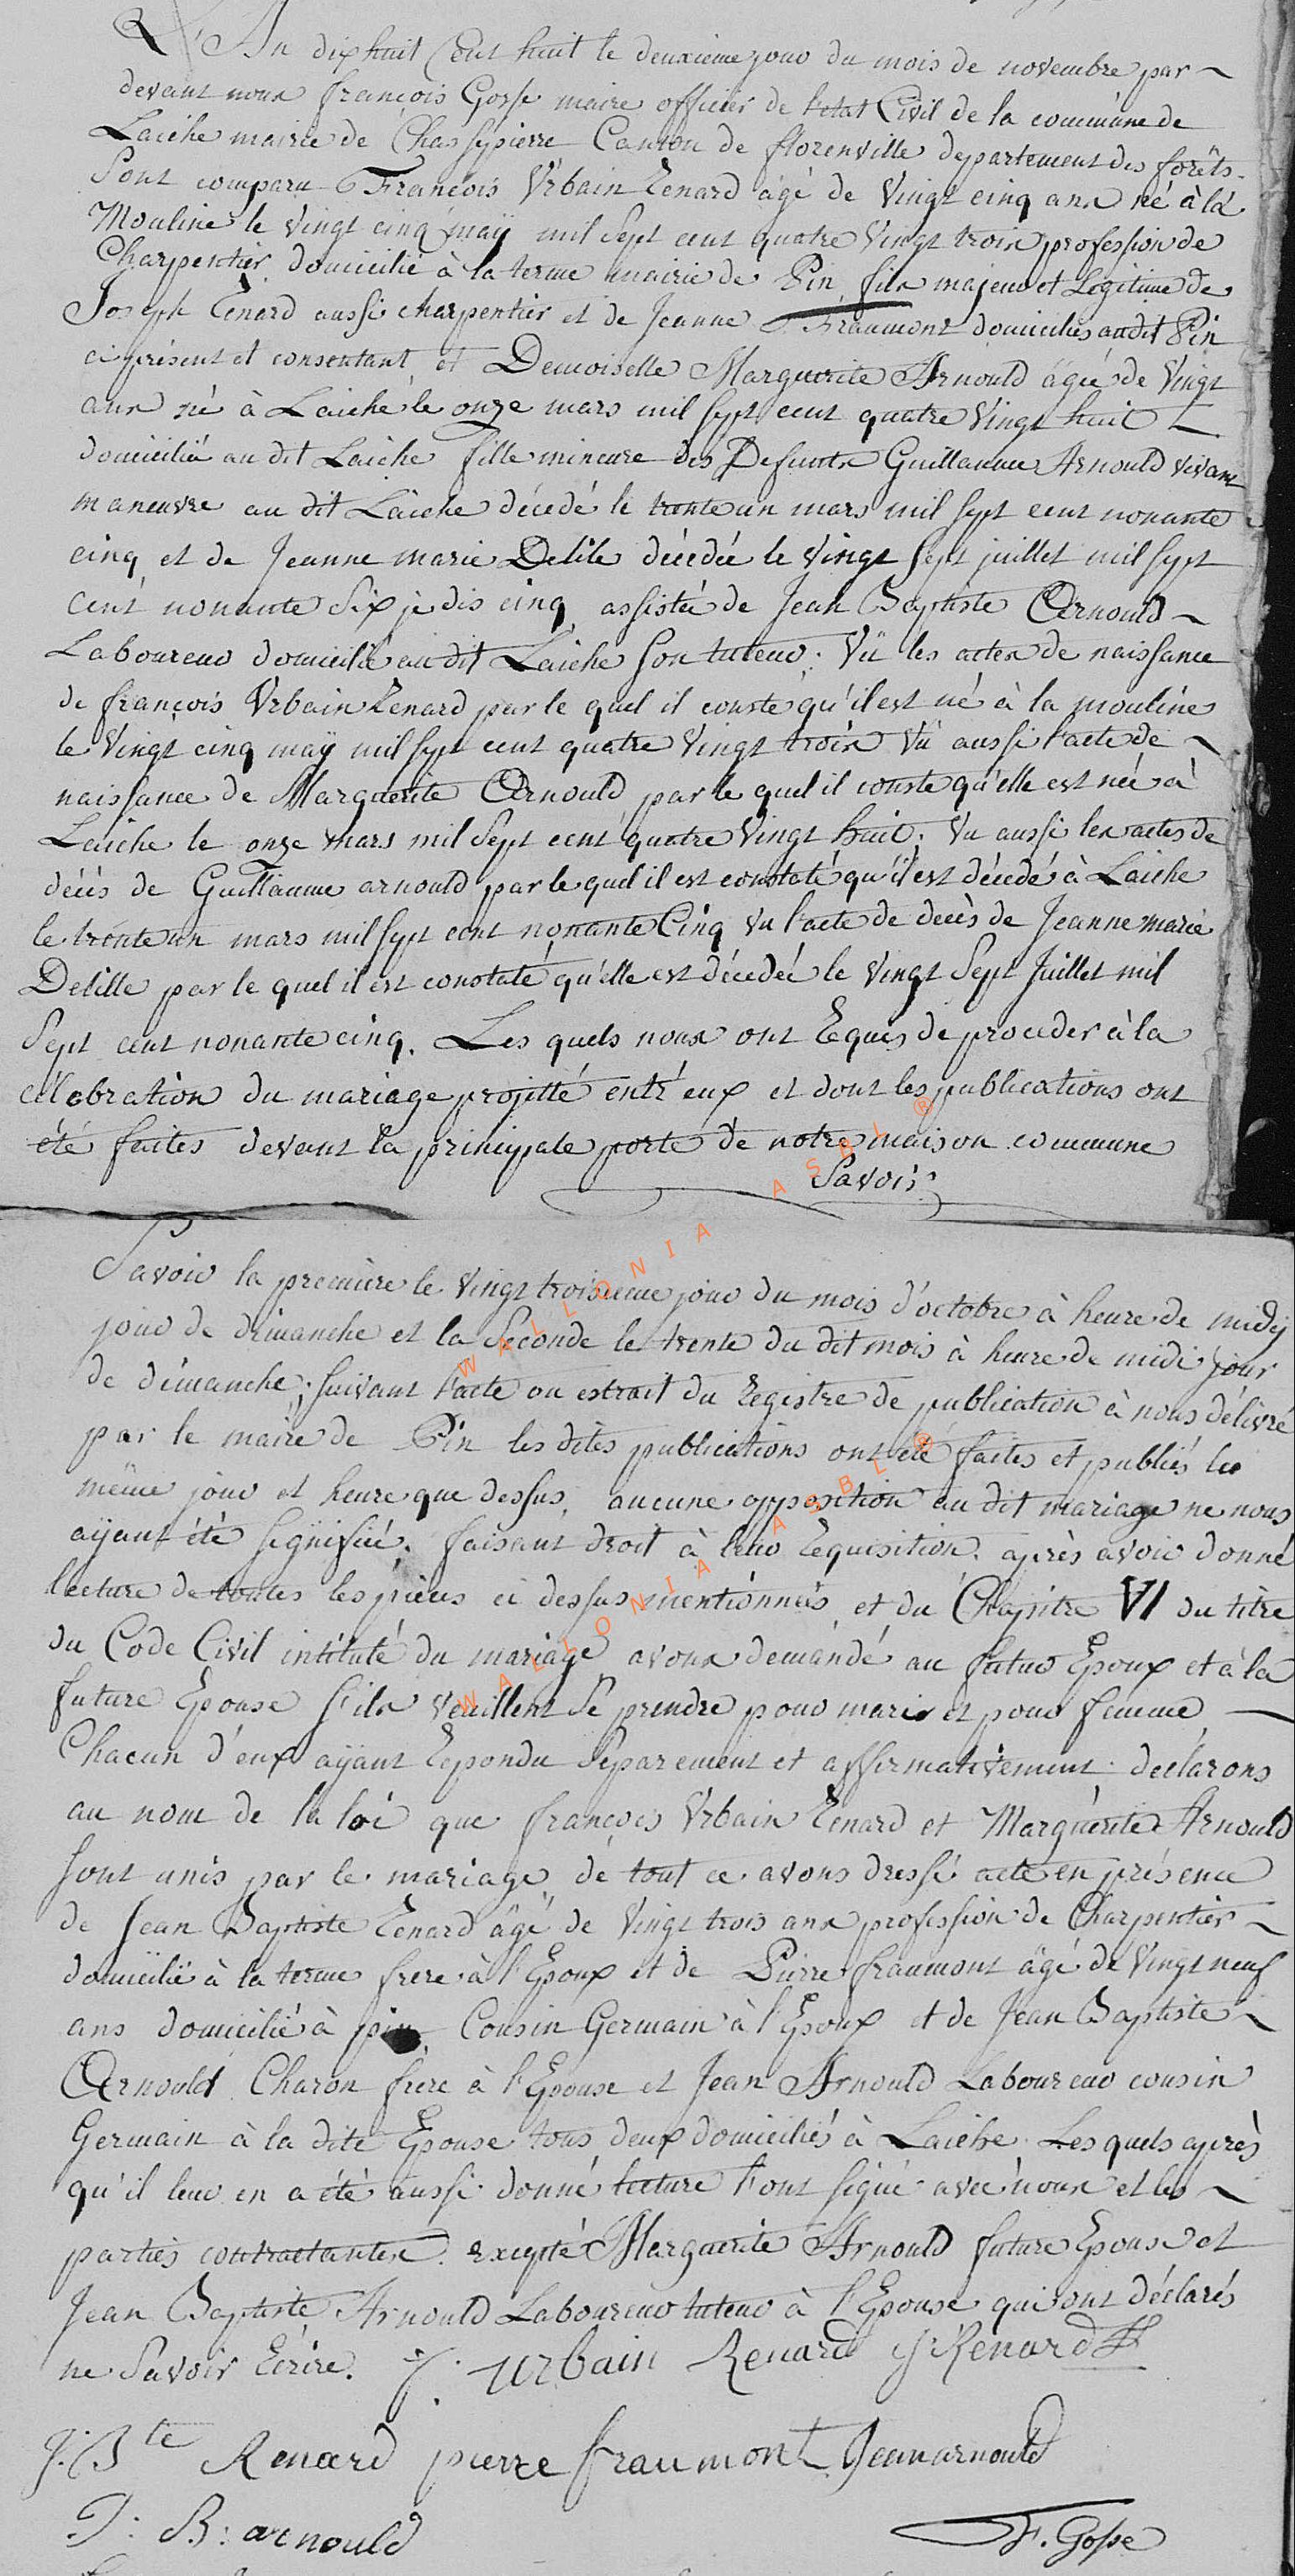 L'An dixhuit Cent huit le deuxieme jour du mois de novembre par
devant nous françois Gosse maire officier de l'etat Civil de la commune de
Laiche mairie de Chassepierre Canton de florenville departement des forêts.
Sont comparu François Urbain Renard âgé de Vingt cinq ans né à la
Mouline le Vingt cinq maÿ mil Sept cent quatre Vingt trois profession de
Charpentier domicilié à la terme mairie de Pin fils majeur et Légitime de
Joseph Renard aussi charpentier et de Jeanne Fraumont domiciliés audit Pin
ci présent et consentant et Demoiselle Marguerite Arnould âgée de Vingt
ans né à Laiche le onze mars mil Sept cent quatre Vingt huit
domicilié au dit Laiche fille mineure des Defunts Guillaume Arnould vivant
maneuvre au dit Laiche décédé le trente un mars mil Sept cent nonante
cinq et de Jeanne marie Delile décédée le Vingt Sept juillet mil Sept
Cent nonante Six je dis cinq assistée de Jean Baptiste Arnould
Laboureur domicilié au dit Laiche Son tuteur. Vü les actes de naissance
de françois Urbain Renard par le quel il conste qu'il est né à la mouline
le Vingt cinq maÿ mil Sept cent quatre Vingt trois Vû aussi l'acte de
naissance de Marguerite Arnould par le quel il conste qu'elle est née à
Laiche le onze mars mil Sept cent quatre Vingt huit. Vu aussi les actes de
décès de Guillaume arnould par le quel il est constaté qu'il est décédé à Laiche
le trente un mars mil Sept cent nonante Cinq Vu l'acte de decès de Jeanne marie
Delille par le quel il est constaté qu'elle est décedeé le Vingt Sept Juillet mil
Sept cent nonante cinq. Les quels nous ont Requis de proceder à la
célebration du mariage projetté entr'eux et dont les publications ont
été faites devant la principale porte de notre maison commune
Savoir
Savoir la première le Vingt troisieme jour du mois d'octobre à heure de midy
jour de dimanche et la Seconde le trente du dit mois à heure de midi jour
de dimanche; Suivant l'acte ou estrait du Registre de publication à nous délivré
par le maire de Pin les dites publications ont été faites et publiés les
même jour et heure que dessus, aucune opposition au dit mariage ne nous
aÿant été Signifiée. faisant droit à leur Réquisition. après avoir donné
lecture de toutes les pièces ci dessus mentionnés et du Chapitre VI du titre
du Code Civil intitulé du mariage avons demandé au futur Epoux et à la
future Epouse S'ils veuillent Se prendre pour maris et pour femme
Chacun d'eux aÿant Repondu Séparement et affirmativement. declarons
au nom de la loi que françois Urbain Renard et Marguerite Arnould
Sont unis par le mariage de tout ce avons dressé acte en présence
de Jean Baptiste Renard âgé de Vingt trois ans profession de Charpentier
domicilié à la terme frere à l'Epoux et de Pierre fraumont âgé de Vingt neuf
ans domicilié à pin Cousin Germain à l'Epoux et de Jean Baptiste
Arnould Charon frere à l'Epouse et Jean Arnould Laboureur cousin
Germain à la dite Epouse tous deux domiciliés à Laiche. Les quels après
qu'il leur en a été aussi donné lecture l'ont Signé avec nous et les
parties contractantes. excepté Marguerite Arnould future Epouse et
Jean Baptiste Arnould Laboureur tuteur à l'Epouse qui ont déclarés
ne Savoir Ecrire. f. urbain Renard J Renard
J. Bte Renard pierre fraumont Jean arnould
J: B: arnould F. Gosse
WALLONIA ASBL ®
WALLONIA ASBL ®